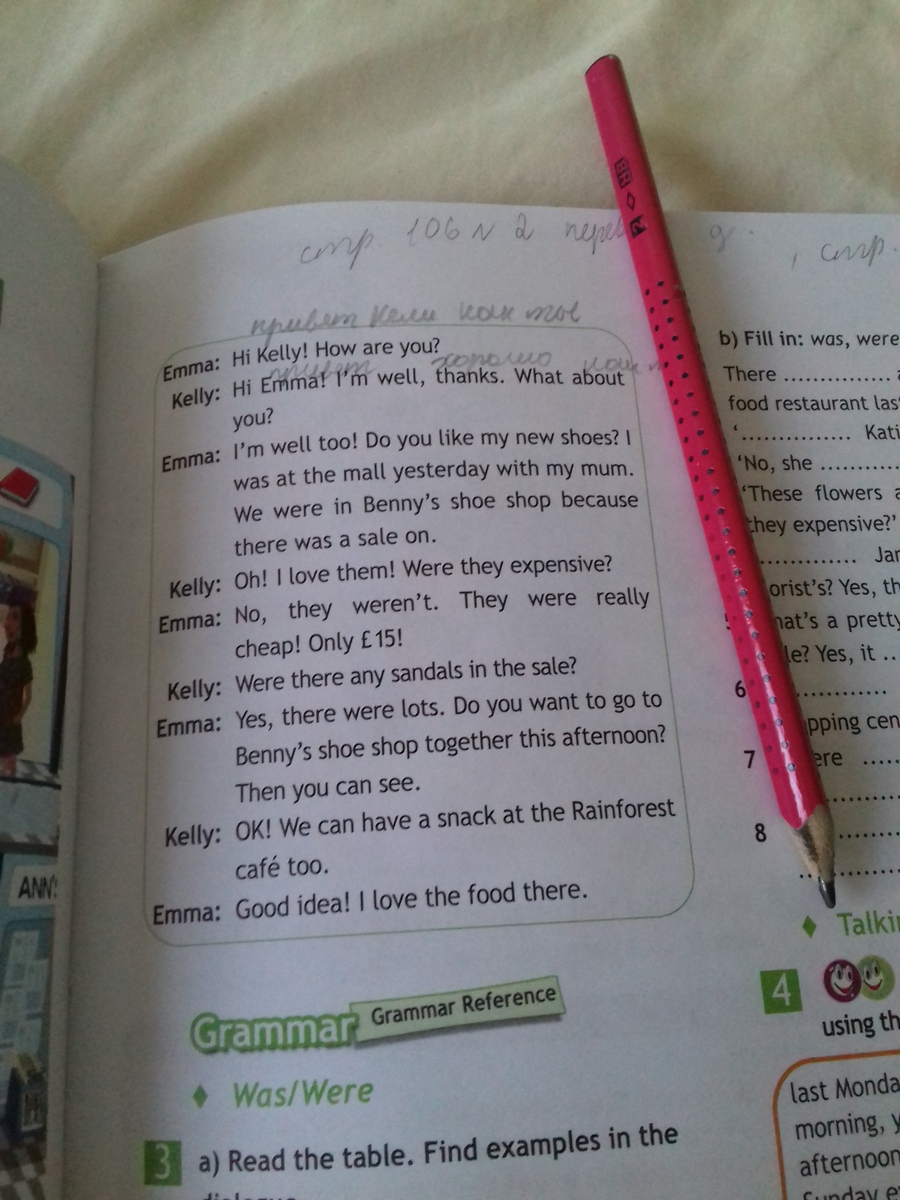 стр. 106 N 2
, стр.
привет Кели как ты
Emma: Hi Kelly! How are you?
привет хорошо как
Kelly: Hi Emma! I'm well, thanks. What about
you?
Emma: I'm well too! Do you like my new shoes? I
was at the mall yesterday with my mum.
We were in Benny's shoe shop because
there was a sale on.
Kelly: Oh! I love them! Were they expensive?
Emma: No, they weren't. They were really
cheap! Only £15!
Kelly: Were there any sandals in the sale?
Emma: Yes, there were lots. Do you want to go to
Benny's shoe shop together this afternoon?
Then you can see.
Kelly: OK! We can have a snack at the Rainforest
café too.
Emma: Good idea! I love the food there.
Grammar Grammar Reference
♦ Was/Were
3 a) Read the table. Find examples in the
b) Fill in: was, were
There ..............
food restaurant
'.............. Kati
'No, she ..........
'These flowers
they expensive?'
............. Jan
Yes, th
a pretty
Yes, it ..
6 .............
7 .....
8 ..........
♦ Talkin
4
using th
last Monda
morning, y
afternoon
Sunday
ANN'S
HB